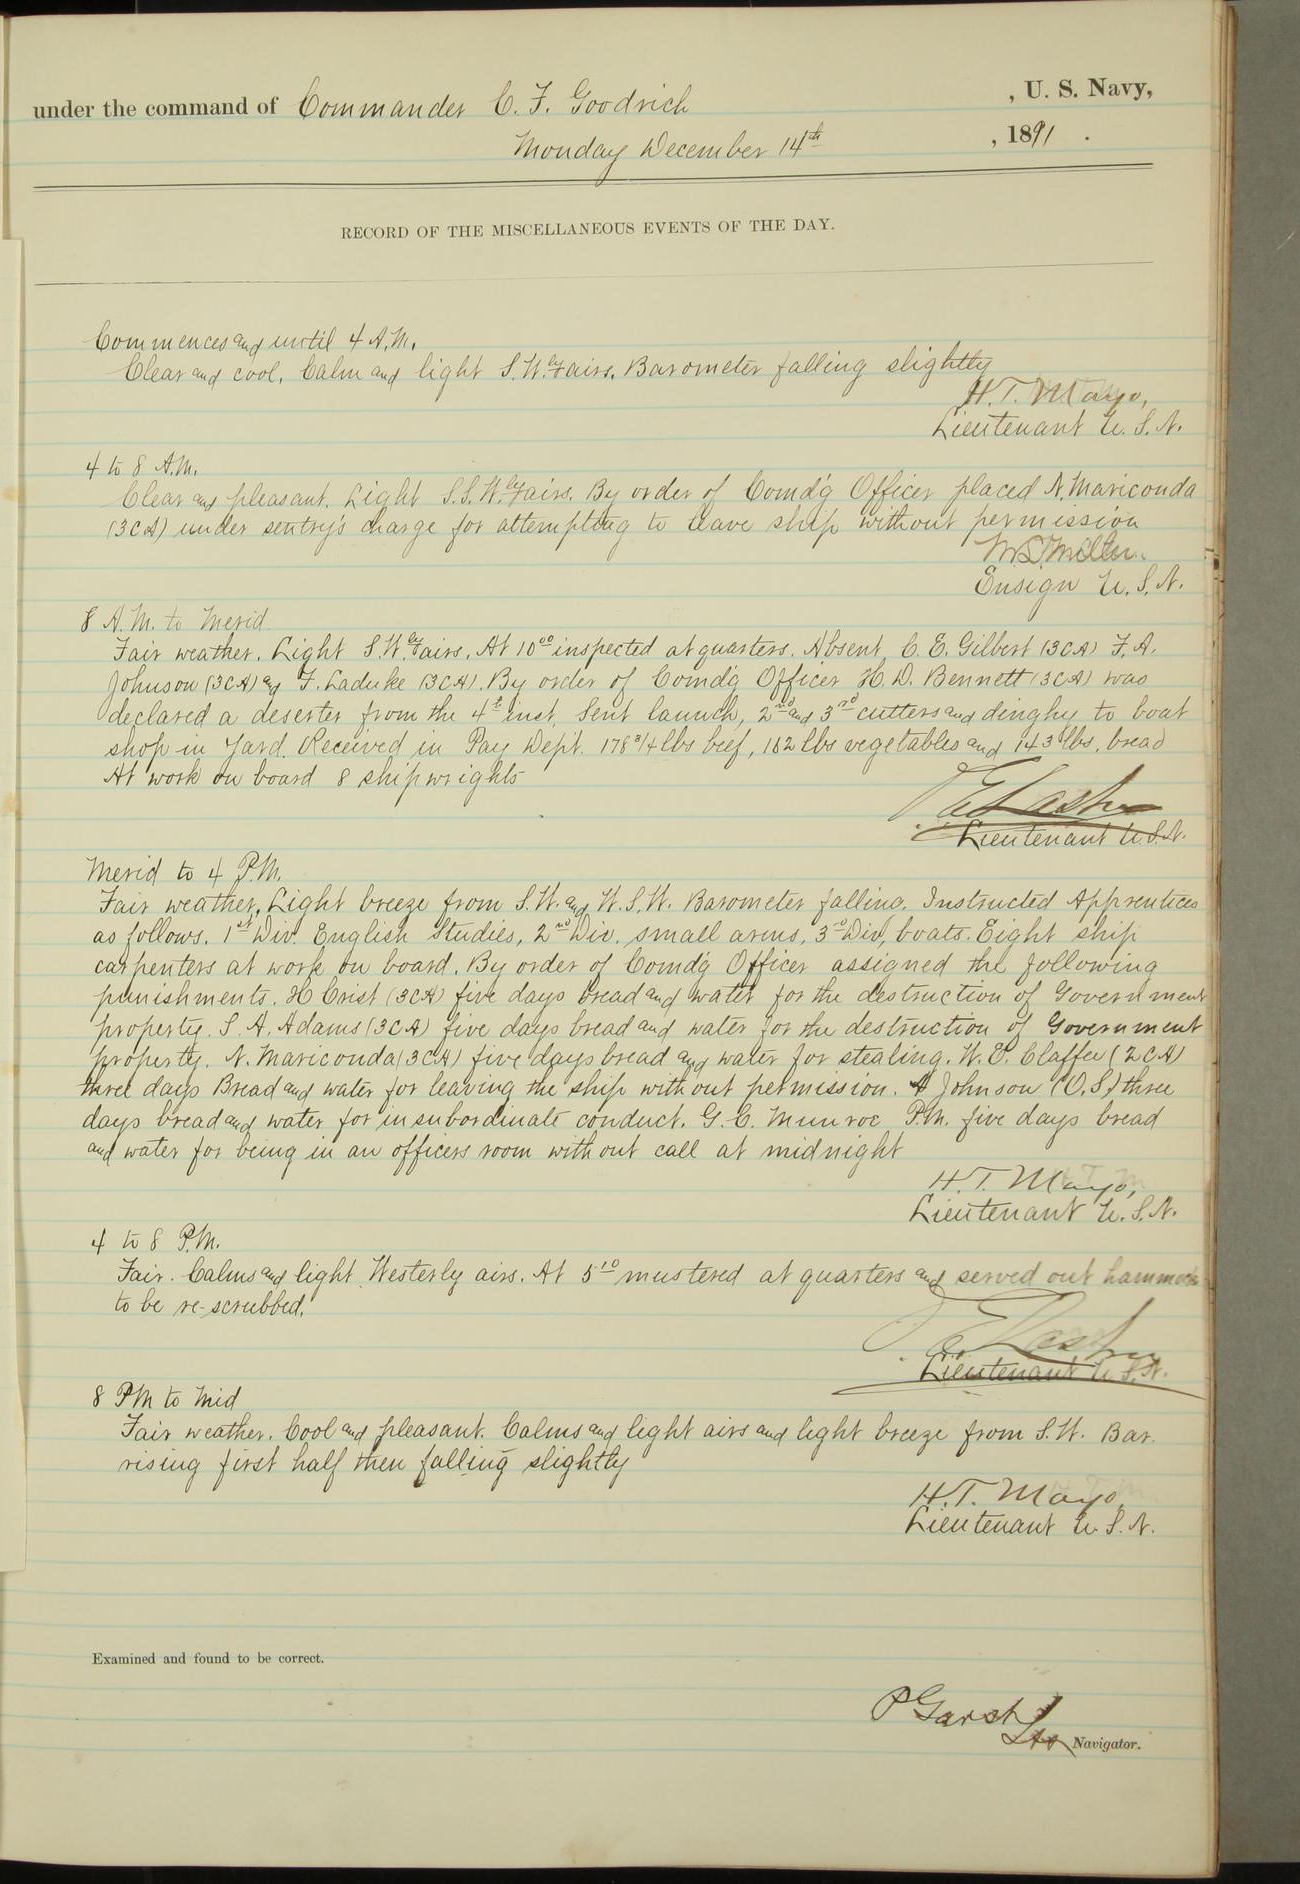 under the command of Commander C. F. Goodrich , U. S. Navy,
Monday December 14th , 1891 .
RECORD OF THE MISCELLANEOUS EVENTS OF THE DAY.
Commences and until 4 A.M.
Clear and cool. Calm and light S.W.ly airs. Barometer falling slightly
H.T. Mayo,
Lieutenant U.S.N.
4 to 8 A.M.
Clear and pleasant. Light S.S.W.ly airs. By order of Comd'g Officer placed N. Mariconda
(3CA) under sentry's charge for attempting to leave ship without permission
Miller
Ensign U.S.N.
8 A.M. to Merid
Fair weather. Light S.W.ly airs. At 10 00 inspected at quarters. Absent C. E. Gilbert (3CA) F. A.
Johnson (3CA) and F. Laduke (3CA). By order of Comd'g Officer H. D. Bennett (3CA) was
declared a deserter from the 4th inst. Sent launch, 2nd and 3rd cutters and dinghy to boat
shop in Yard. Received in Pay Dept. 178 3/4 lbs beef, 182 lbs vegetables and 143 lbs. bread
At work on board 8 shipwrights
Lieutenant U.S.N.
Merid to 4 P.M.
Fair weather. Light breeze from S.W. and W.S.W. Barometer falling. Instructed Apprentices
as follows. 1st Div. English Studies, 2nd Div. small arms, 3rd Div, boats. Eight ship
carpenters at work on board. By order of Comd'g Officer assigned the following
punishments. H Crist (3CA) five days bread and water for the destruction of Government
property. S. A. Adams (3CA) five days bread and water for the destruction of Government
property. N. Mariconda (3CA) five days bread and water for stealing. W. E. Claffee (2CA)
three days Bread and water for leaving the ship without permission. A Johnson (O.S) three
days bread and water for insubordinate conduct. G. C. Munroe P.M. five days bread
and water for being in an officers room without call at midnight
H.T. Mayo,
Lieutenant U.S.N.
4 to 8 P.M.
Fair. Calms and light Westerly airs. At 5 10 mustered at quarters and served out hammocks
to be re-scrubbed.
Lieutenant U.S.N.
8 PM to Mid
Fair weather. Cool and pleasant. Calms and light airs and light breeze from S.W. Bar.
rising first half then falling slightly
H.T. Mayo,
Lieutenant U.S.N.
Examined and found to be correct.
P Garst
Lt Navigator.